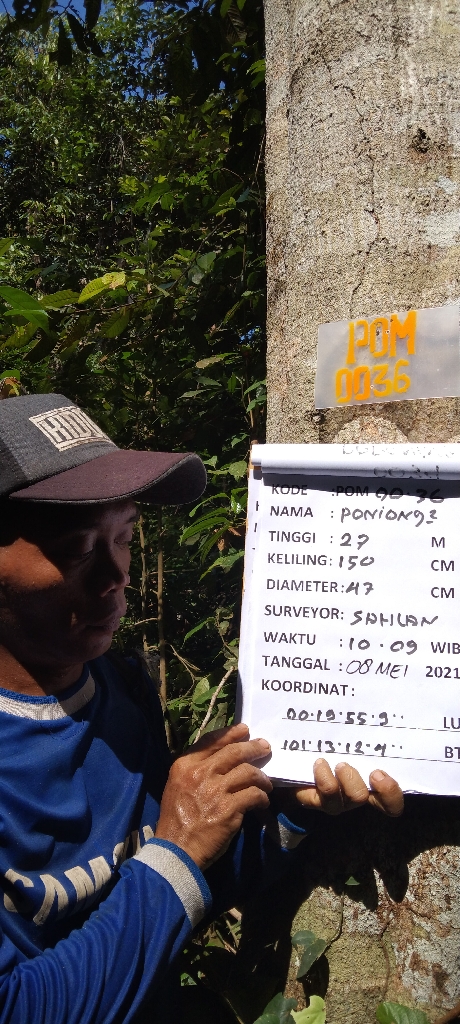 POM
0036
KODE :POM 00.36
NAMA : PONIONG2
TINGGI : 27 M
KELILING: 150 CM
DIAMETER: 47 CM
SURVEYOR: SAHLAN
WAKTU : 10.09 WIB
TANGGAL : 08 MEI 2021
KOORDINAT:
00.19.55.9'' LU
101.13.12.4'' BT